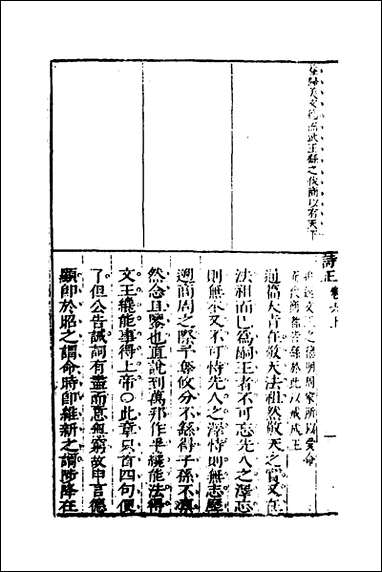 歸美文德而武王繇之伐商以有天下
詩正 卷六上 一
追述文王之德明周家所以受命
而代商皆繇於此以戒成王
通篇大旨在敬天法祖然敬天之實又在
法祖而已爲嗣王者不可忘先人之澤忘
則無本又不可恃先人之澤恃則無志歷
遡商周之際予奪攸分不繇得子孫不凜
然念且鑒也直說到萬邦作孚纔能法得
文王纔能事得上帝○此章只首四句便
了但公告誡詞有盡而意無窮故申言德
顯即於昭之謂命時即維新之謂陟降在